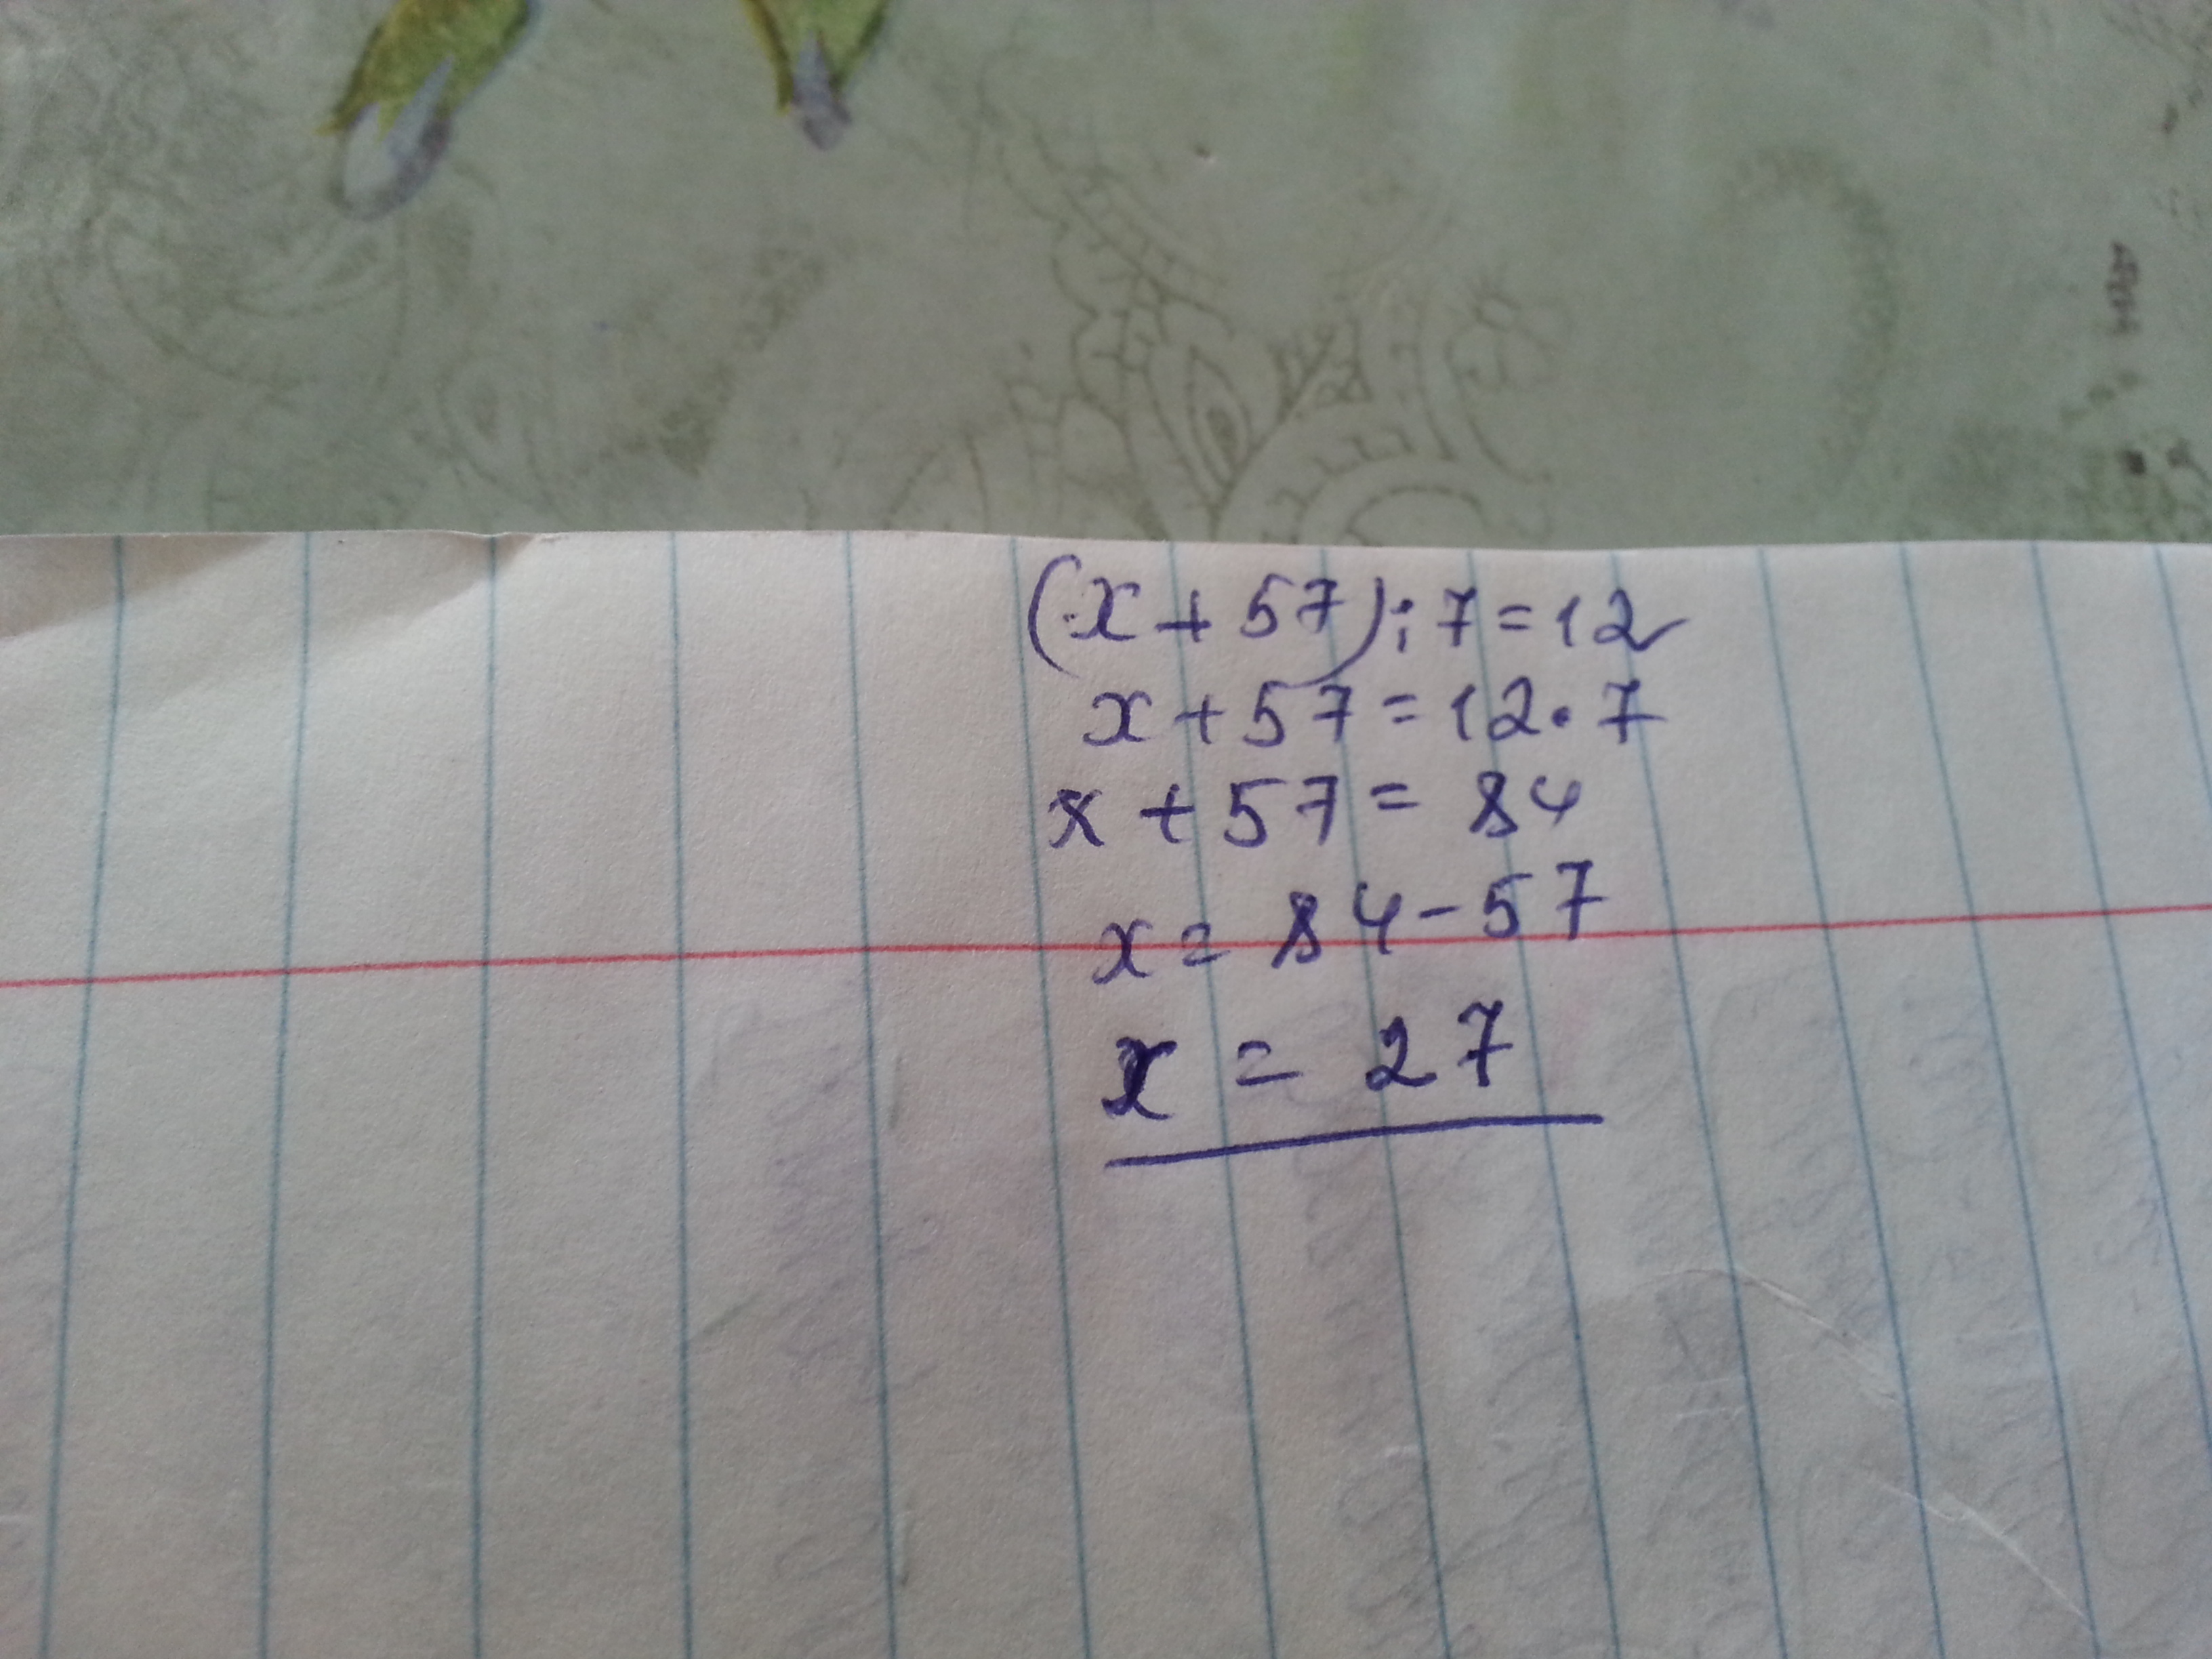 (x + 57) : 7 = 12
x + 57 = 12 • 7
x + 57 = 84
x = 84 - 57
x = 27